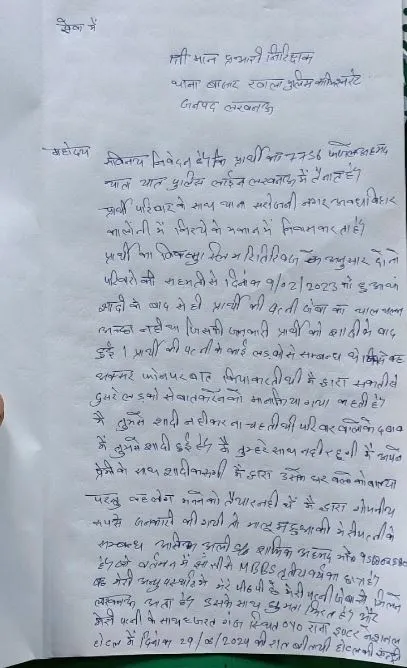 सेवा में
श्री मान प्रभारी निरिक्षक
थाना बाजार खाला पुलिस कमिश्नरेट
जनपद लखनऊ
महोदय सविनय निवेदन है कि प्रार्थी का 7756
यातायात पुलिस लाईन लखनऊ में तैनात है।
प्रार्थी परिवार के साथ थाना सरोजनी नगर अवध विहार
कालोनी में किराये के मकान में निवास करता है।
प्रार्थी का मुस्लिम रितिरिवाज के अनुसार दोनो
परिवारो की सहमती से दिनांक 9/02/2023 को हुआ था
शादी के बाद से ही प्रार्थी की पत्नी का चाल चलन
अच्छा नही था जिसकी जानकारी प्रार्थी को शादी के बाद
हुई। प्रार्थी की पत्नी के कई लडको से सम्बन्ध थे वह
अक्सर फोन पर बात किया करती थी मै द्वारा
दुसरे लडको से बात करने को मना किया गया कहती है
मै तुमसे शादी नही करना चाहती थी परिवार वालो के दबाव
में तुमसे शादी हुई है। मै तुम्हारे साथ नही रहूगी मै अपने
प्रेमी के साथ शादी करूगी मै द्वारा उसके घर वालो को बताया
परन्तु वह लोग मानने को तैयार नही थे मै द्वारा गोपनीय
रूप से जानकारी की गयी तो मालूम हुआ की मेरी पत्नी के
सम्बन्ध अली
है। जो वर्तमान में झाँसी से MBBS तृतीय वर्ष का छात्र है।
वह मेरी अनुपस्थिति में मेरे पीठ पीछे मेरी पत्नी से मिलने
लखनऊ आता है। उसके साथ घुमता फिरता है। और
मेरी पत्नी के साथ हजरत गंज स्थित OYO राना इण्टर नेशनल
होटल में दिनांक 29/06/2024 को रात